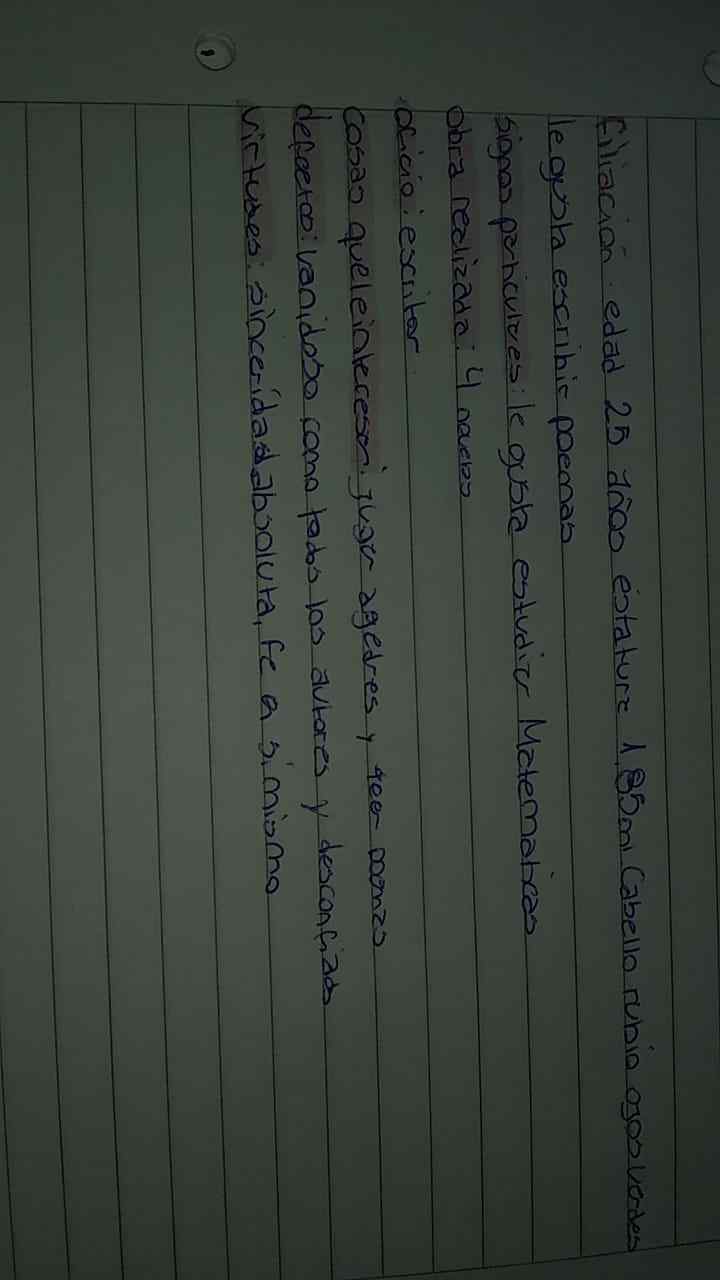 filiación: edad 25 años estatura 1,85ml Cabello rubio ogos verdes
le gusta escribir poemas
signos particulares: le gusta estudiar Matematicas
obra realizada: 4 novelas
oficio: escritor
cosas que le interesan: jugar agedres y leer poemas
defectos: vanidoso como todos los autores y desconfiado
virtudes: sinceridad absoluta, fe a si mismo